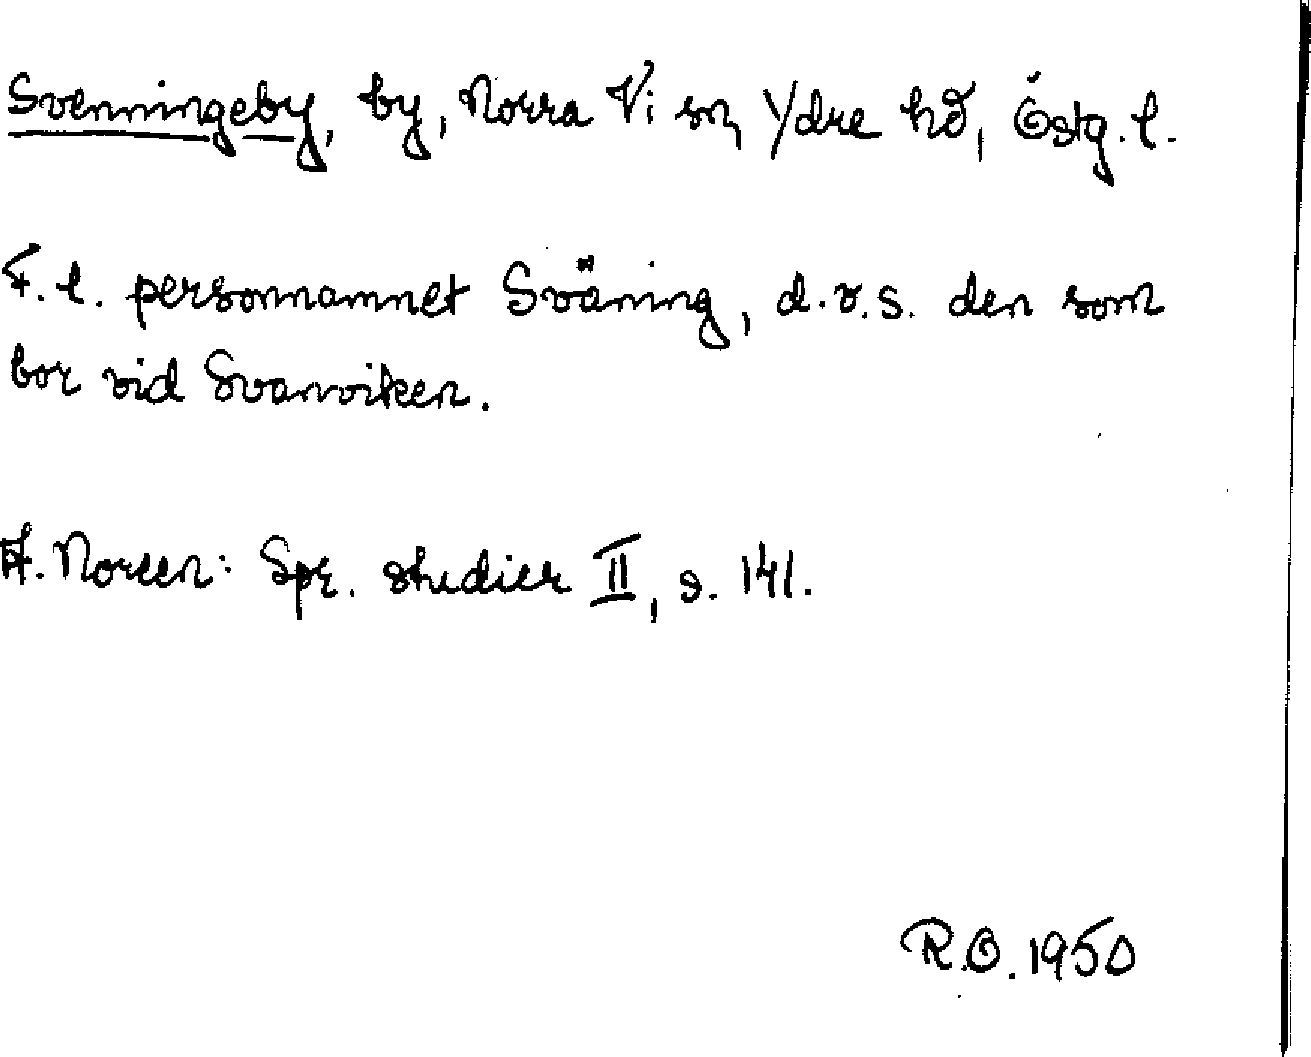 Svenningeby, by, Norra Vi sn, Ydre hd, Östg. l.
F. l. personnamnet Sväning, d.v.s. den som
bor vid Svanviken.
A. Noreen: Spr. studier II, s. 141.
R.O. 1950